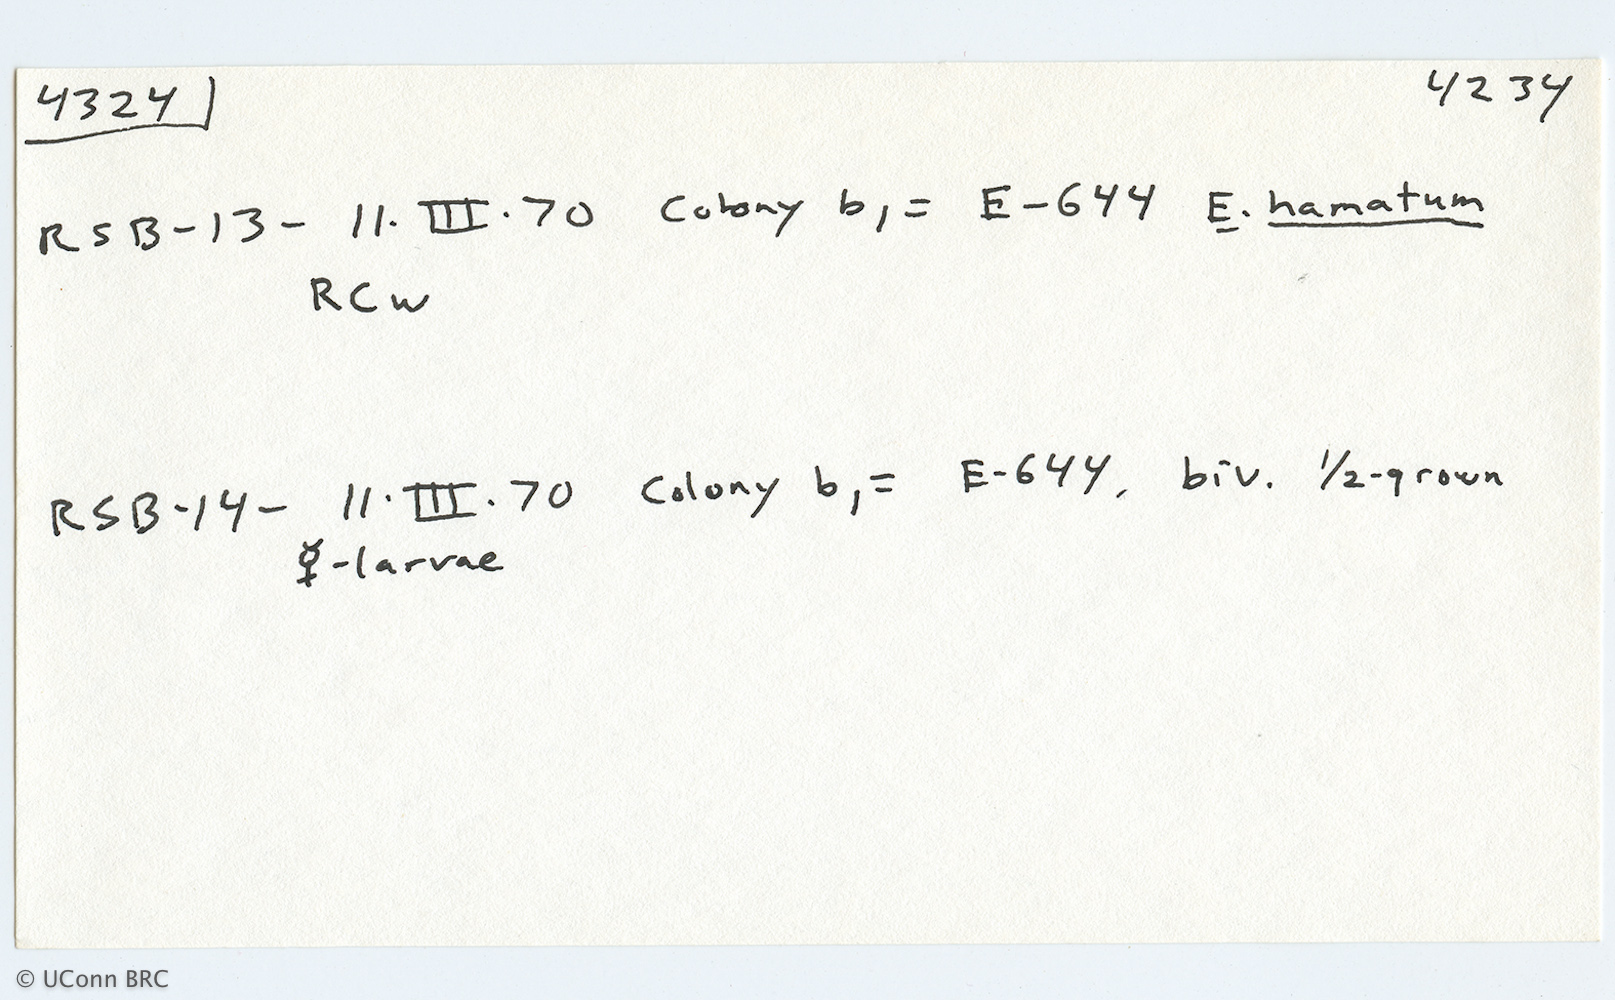 4324 4234
RSB-13- 11.III.70 Colony b,= E-644 E. hamatum
RCW
RSB-14- 11.III.70 Colony b,= E-644, biv. 1/2-grown
☿-larvae
© UConn BRC